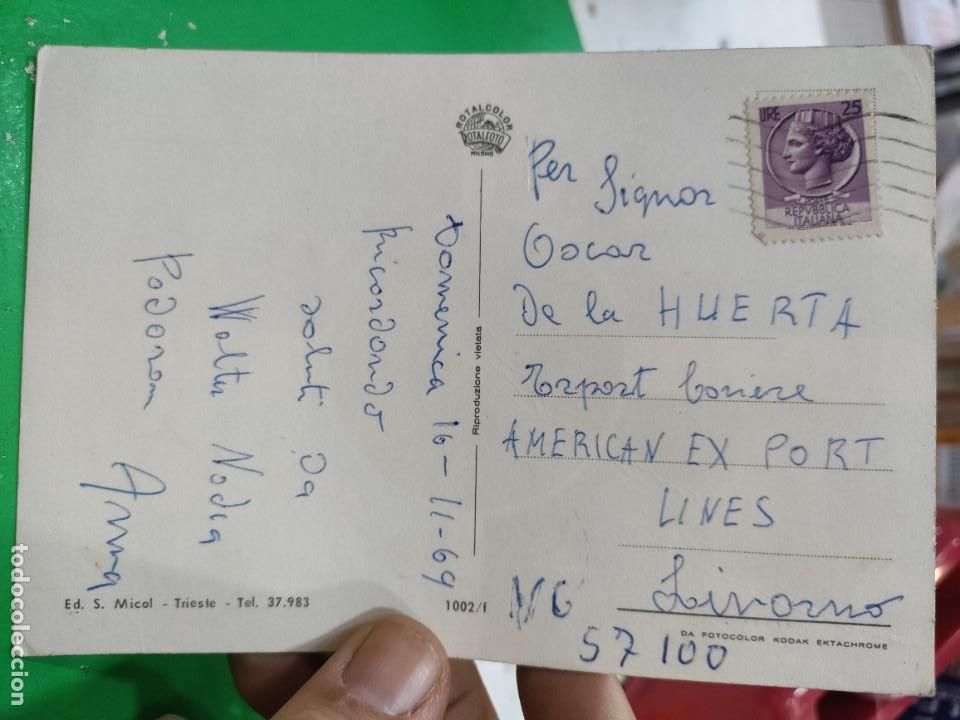 ROTALCOLOR
ROTALFOTO
MILANO
LIRE 25
REPVBBLICA
ITALIANA
Domenica 16-11-69
Ricordando
saluti da
Walter Nadia
Anna
Riproduzione vietata
Per Signor
Oscar
De la HUERTA
Export
AMERICAN EX PORT
LINES
Livorno
57100
Ed. S. Micol - Trieste - Tel. 37.983
1002/I
DA FOTOCOLOR KODAK EKTACHROME
todocoleccion